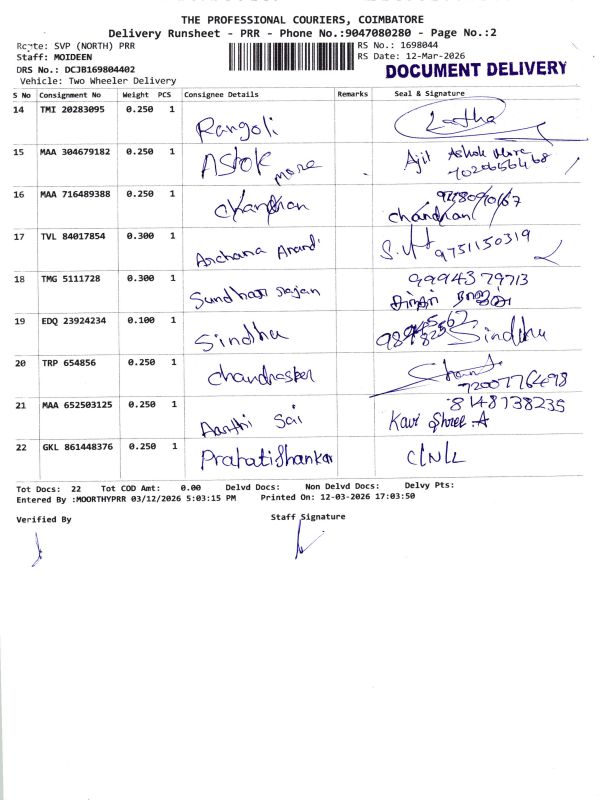 THE PROFESSIONAL COURIERS, COIMBATORE
Delivery Runsheet - PRR - Phone No.:9047080280 - Page No.:2
Route: SVP (NORTH) PRR
RS No.: 1698044
Staff: MOIDEEN
RS Date: 12-Mar-2026
DRS No.: DCJB169804402
DOCUMENT DELIVERY
Vehicle: Two Wheeler Delivery
S No Consignment No Weight PCS Consignee Details Remarks Seal & Signature
14 TMI 20283095 0.250 1 Rangoli Latha
15 MAA 304679182 0.250 1 Ashok more Ajit Ashok More
16 MAA 716489388 0.250 1 chandhan chandhan
17 TVL 84017854 0.300 1 Archana Anand 9751150319
18 TMG 5111728 0.300 1 Sundhar rajan 9994379713
19 EDQ 23924234 0.100 1 Sindhu Sindhu
20 TRP 654856 0.250 1 chandrasker 7200776498
21 MAA 652503125 0.250 1 Aarthi Sai 8148738235
Kavi Shree .A
22 GKL 861448376 0.250 1 C/N/L
Tot Docs: 22 Tot COD Amt: 0.00 Delvd Docs: Non Delvd Docs: Delvy Pts:
Entered By :MOORTHYPRR 03/12/2026 5:03:15 PM Printed On: 12-03-2026 17:03:50
Verified By
Staff Signature